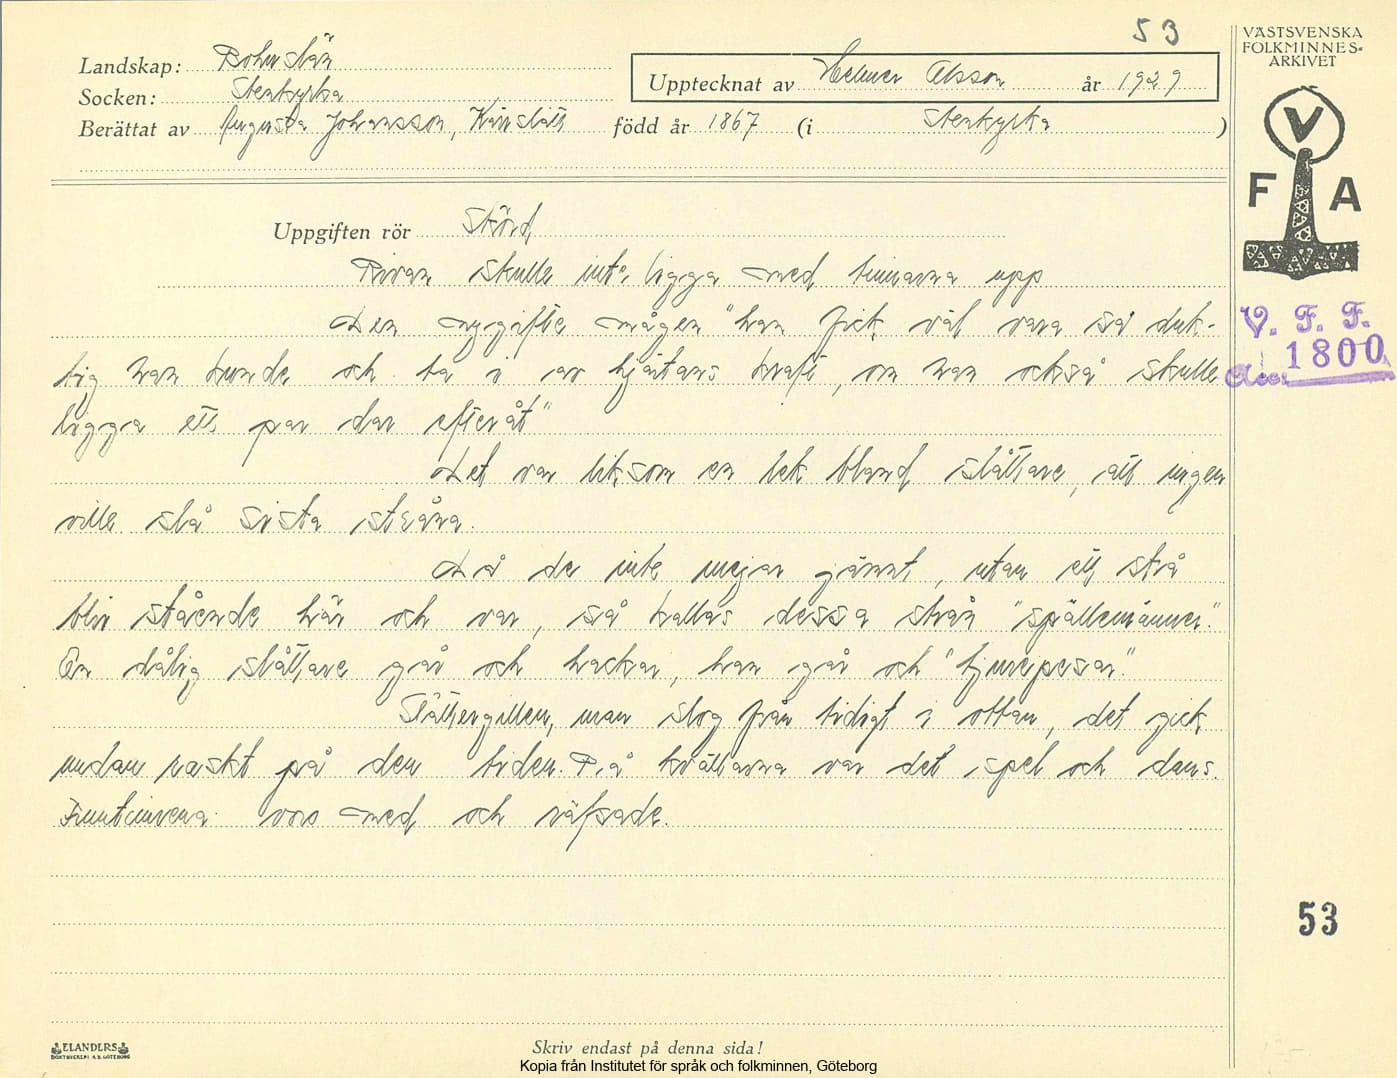 53
VÄSTSVENSKA
FOLKMINNES-
ARKIVET
Landskap: Bohuslän
Socken: Stenkyrka
Upptecknat av Helmer Olsson år 1929
Berättat av Augusta Johansson, född år 1867 (i Stenkyrka)
V
F A
Uppgiften rör Skörd
Rivan skulle inte ligga med tinnarna upp
V. F. F.
Den nygifte mågen "han fick väl vara så duk-
Acc. 1800
tig han kunde och ta i av hjärtans kraft, om han också skulle
ligga ett par dar efteråt"
Det var liksom en lek bland slåttare, att ingen
ville slå sista stråna.
Då de inte mejar jämnt, utan ett strå
blir stående här och var, så kallas dessa strån "spällemänner."
En dålig slåttare går och hackar, han går och
Slåttergillen, man slog från tidigt i ottan, det gick
undan raskt på den tiden. På kvällarna var det spel och dans.
Fruntimrena voro med och räfsade.
53
ELANDERS
BOKTRYCKERI A.B. GÖTEBORG
Skriv endast på denna sida!
Kopia från Institutet för språk och folkminnen, Göteborg